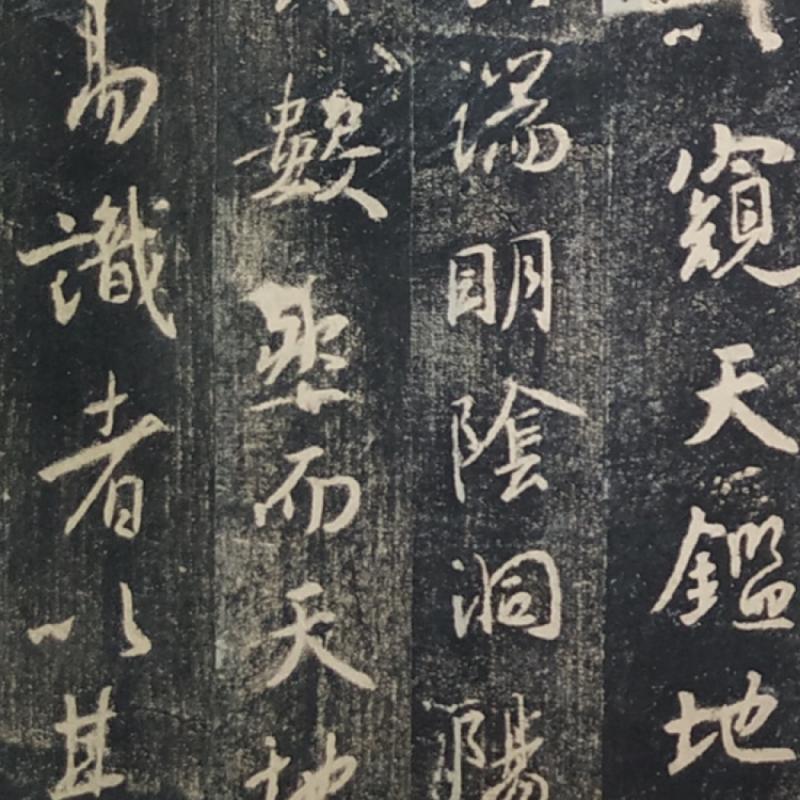 以窺天鑑地
端明陰洞陽
數然而天地
易識者以其